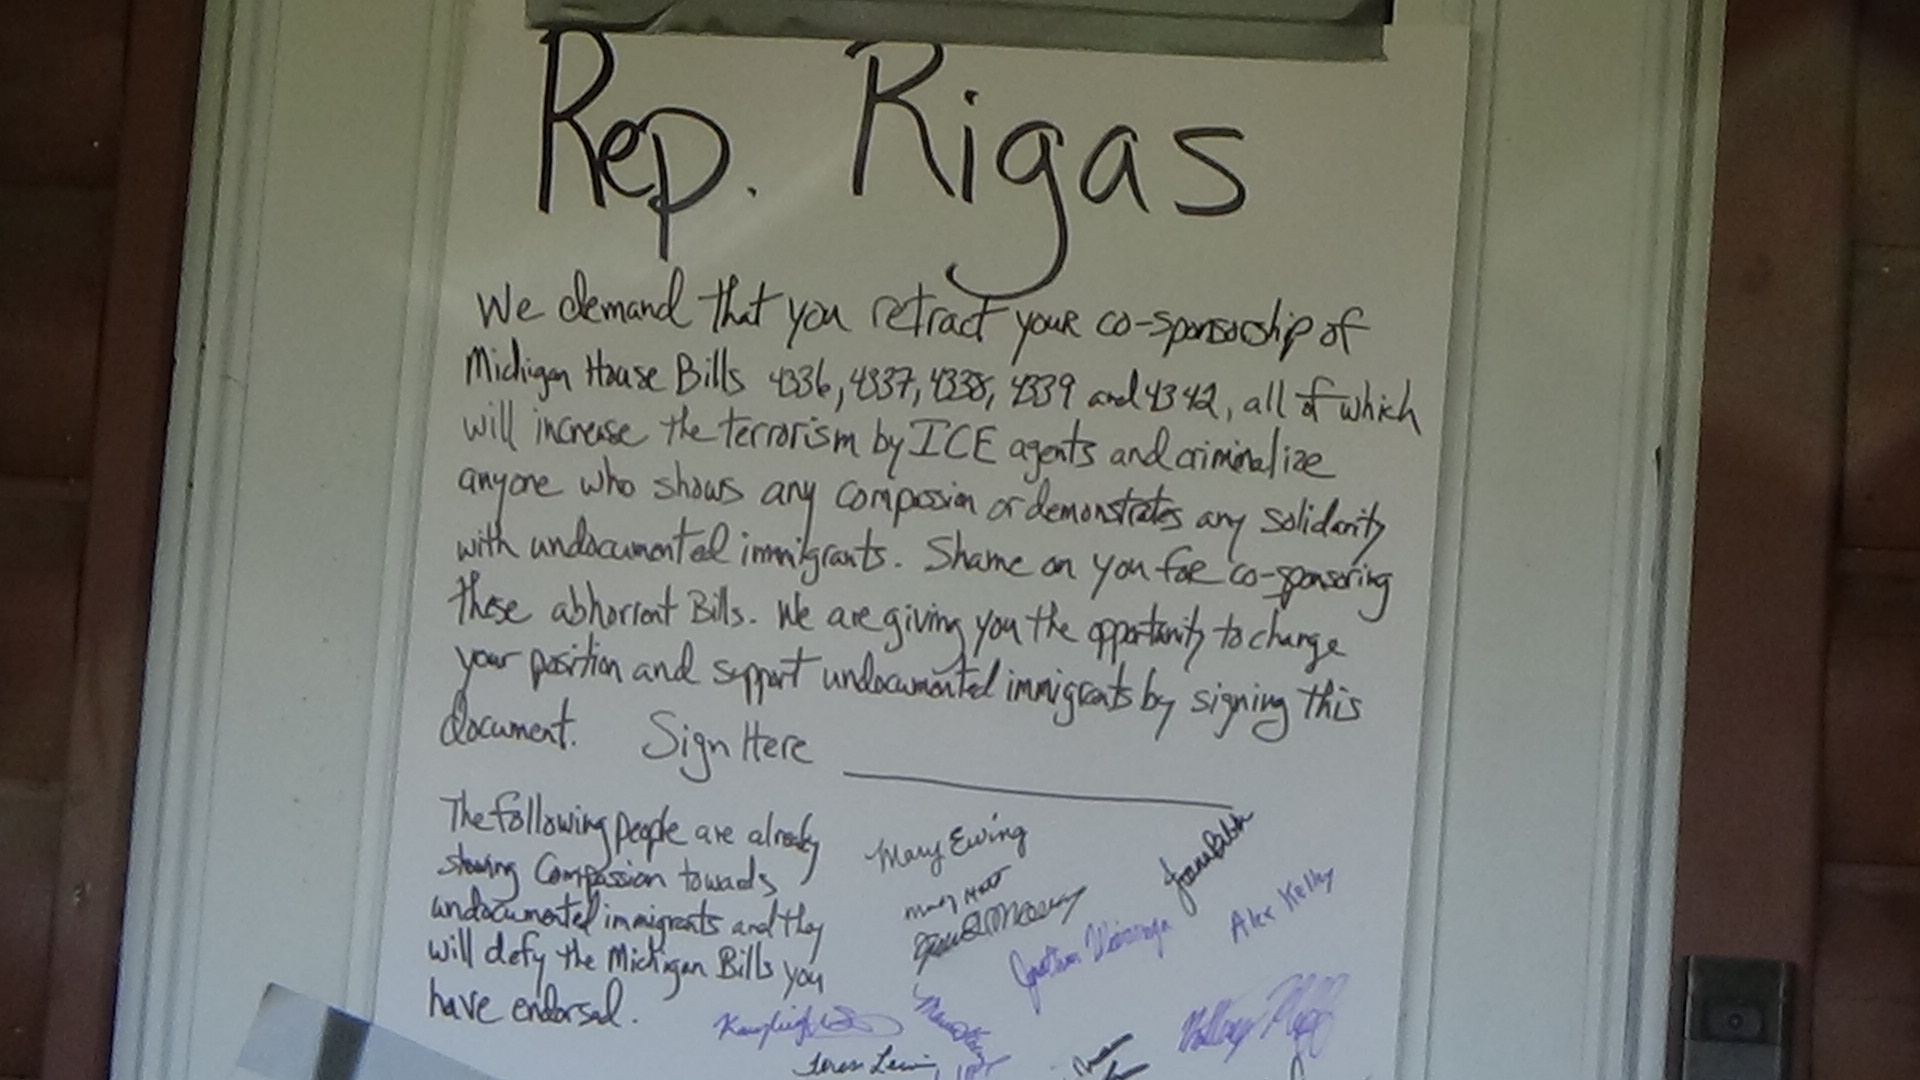 Rep. Rigas
We demand that you retract your co-sponsorship of
Michigan House Bills 4336, 4337, 4338, 4339 and 4342, all of which
will increase the terrorism by ICE agents and criminalize
anyone who shows any compassion or demonstrates any solidarity
with undocumented immigrants. Shame on you for co-sponsoring
these abhorrent Bills. We are giving you the opportunity to change
your position and support undocumented immigrants by signing this
document. Sign Here
The following people are already
showing compassion towards
undocumented immigrants and they
will defy the Michigan Bills you
have endorsed.
Mary Ewing
Alex Kelley